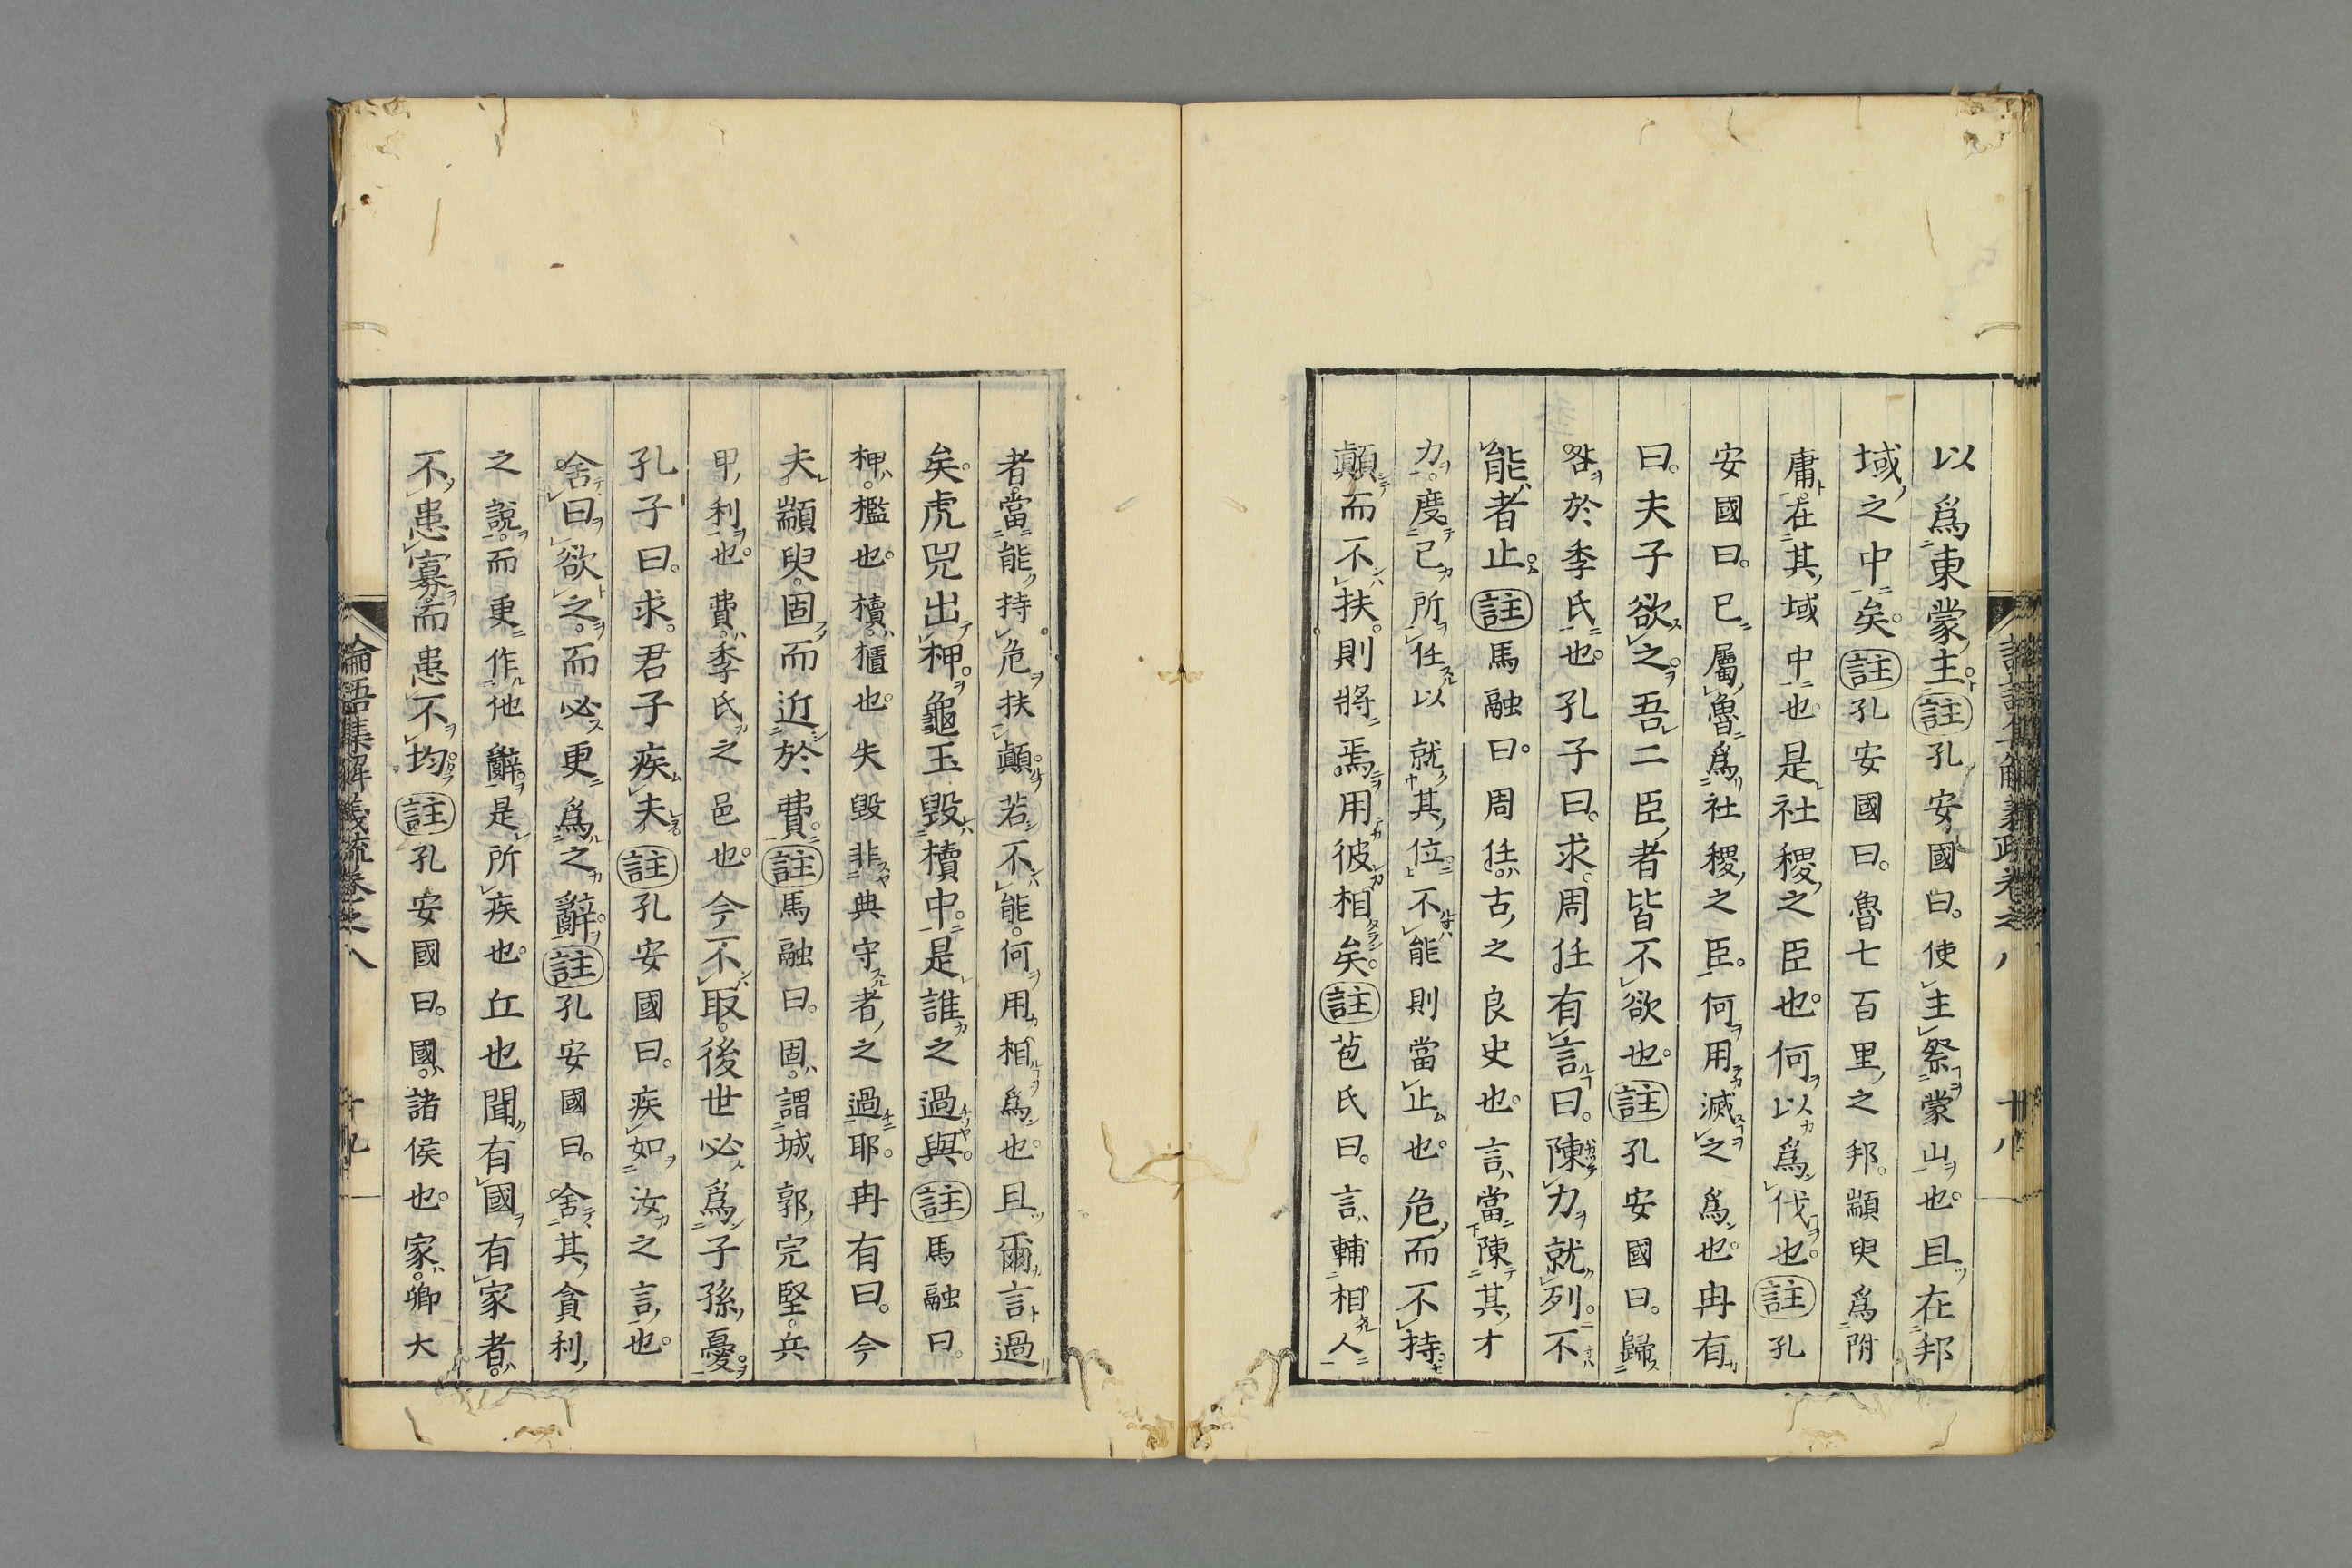 以爲東蒙主註孔安國曰使主祭蒙山也且在邦
域之中矣註孔安國曰魯七百里之邦顓臾爲附
庸在其域中也是社稷之臣也何以爲伐也註孔
安國曰已屬魯爲社稷之臣何用滅之爲也冉有
曰夫子欲之吾二臣者皆不欲也註孔安國曰歸
咎於季氏也孔子曰求周任有言曰陳力就列不
能者止註馬融曰周任古之良史也言當陳其才
力度已所任以就其位不能則當止也危而不持
顛而不扶則將焉用彼相矣註苞氏曰言輔相人
者當能持危扶顛若不能何用相爲也且爾言過
矣虎兕出柙龜玉毀櫝中是誰之過與註馬融曰
柙檻也櫝櫃也失毀非典守者之過耶冉有曰今
夫顓臾固而近於費註馬融曰固謂城郭完堅兵
甲利也費季氏之邑也今不取後世必爲子孫憂
孔子曰求君子疾夫註孔安國曰疾如汝之言也
舍曰欲之而必更爲之辭註孔安國曰舍其貪利
之說而更作他辭是所疾也丘也聞有國有家者
不患寡而患不均註孔安國曰國諸侯也家卿大
論語集解義疏卷之八 十九